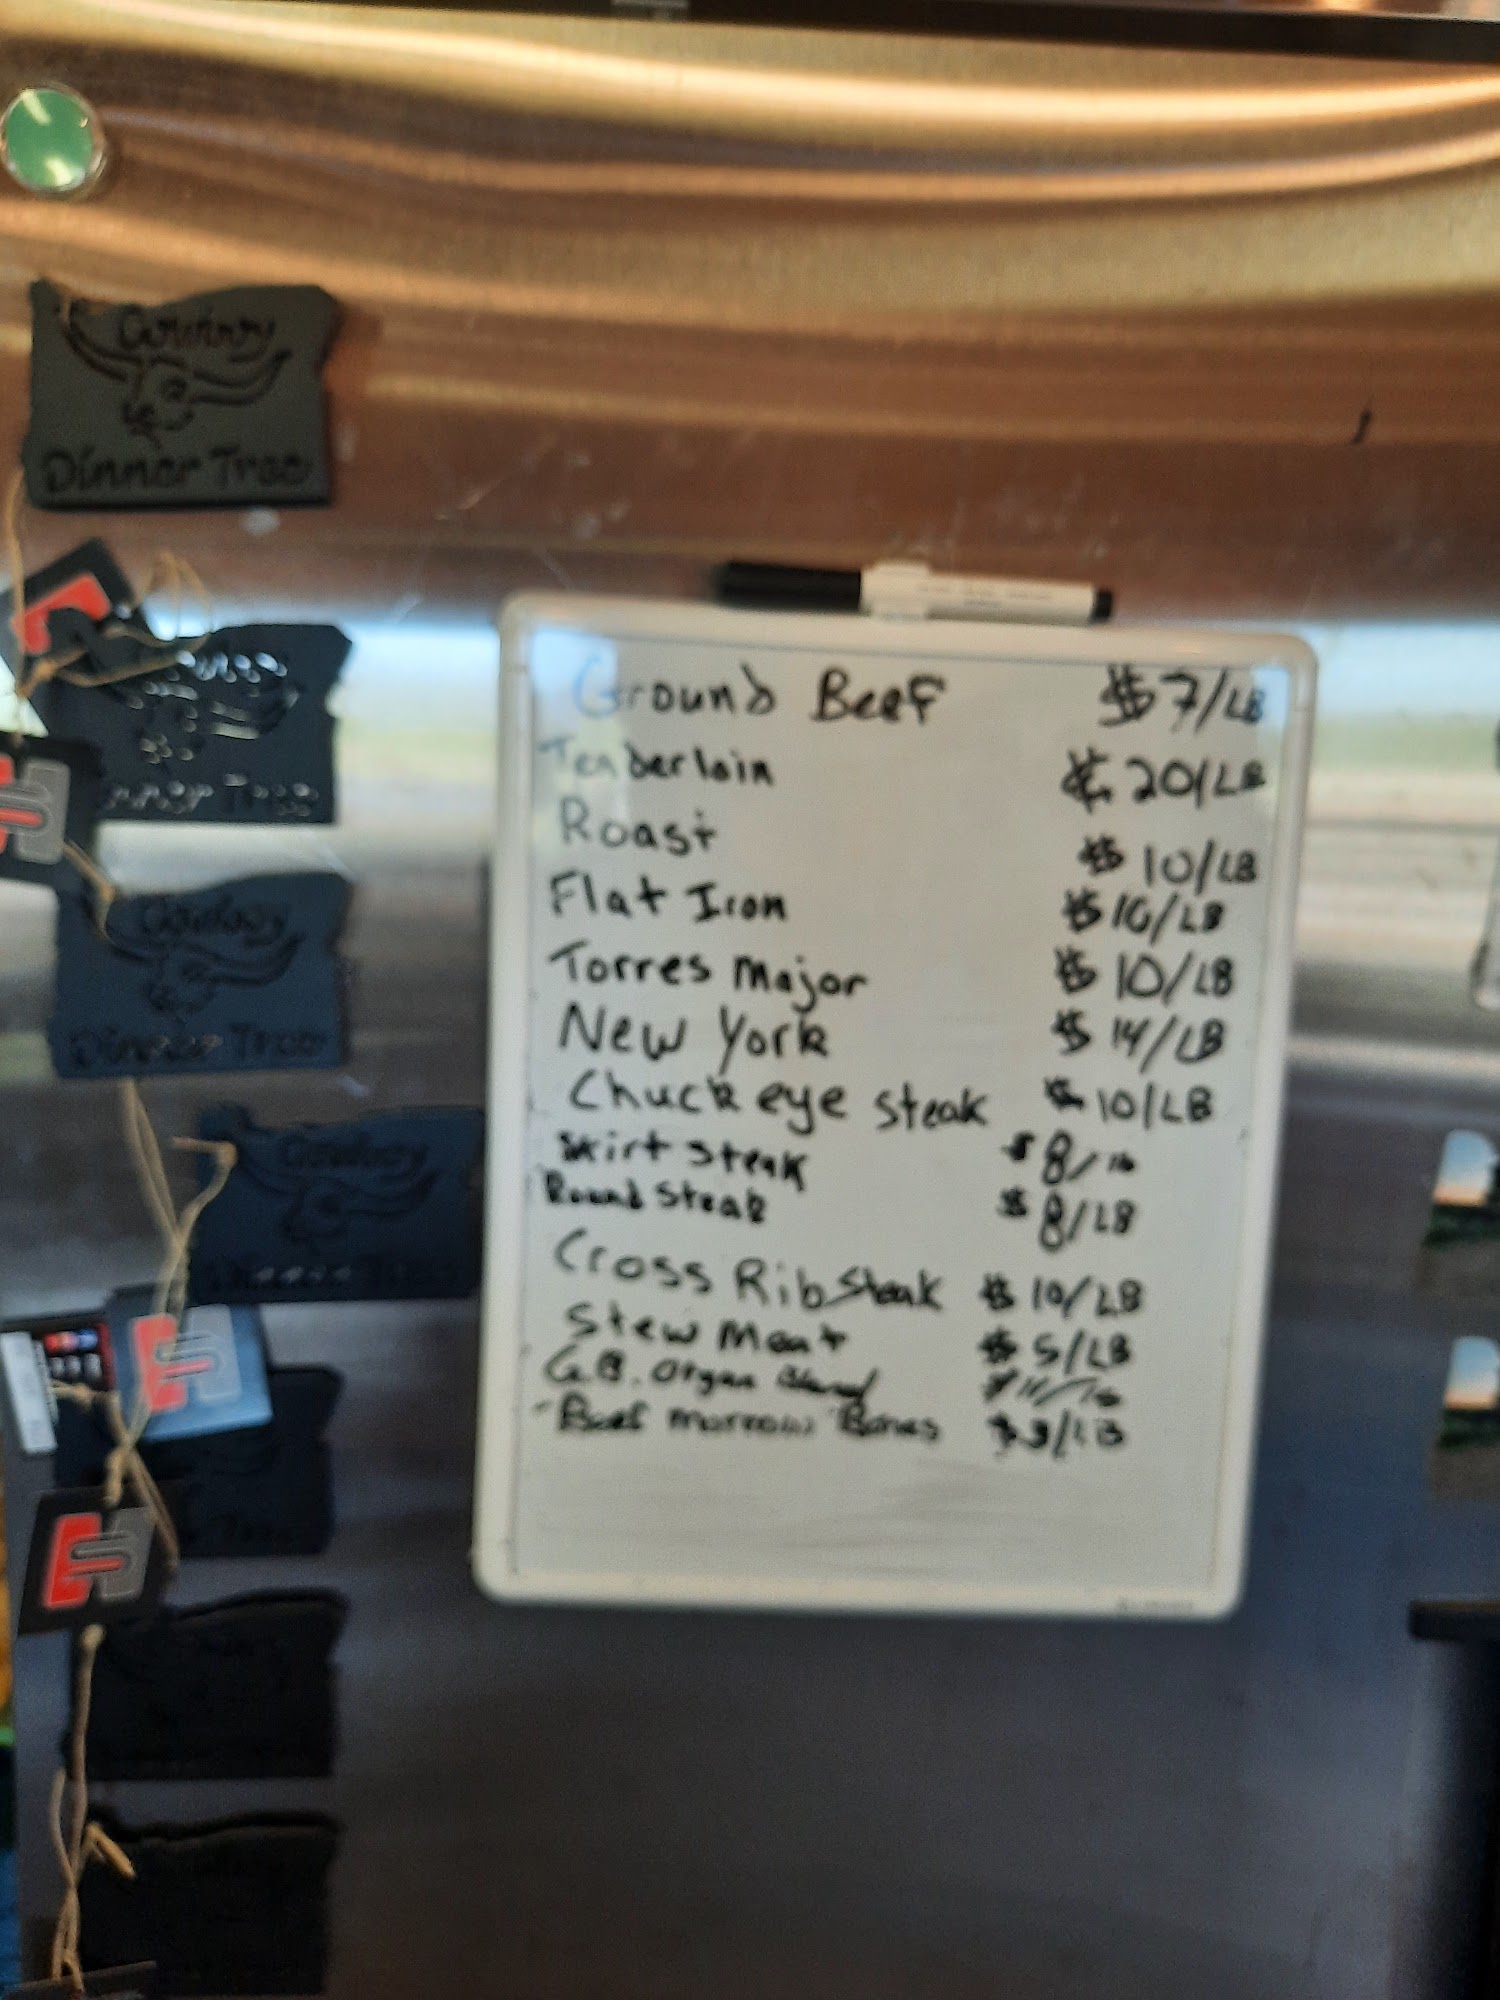 Cowboy
Dinner Tree
Dinner Tree
Cowboy
Dinner Tree
Cowboy
Ground Beef $7/LB
Tenderloin $20/LB
Roast $10/LB
Flat Iron $10/LB
Torres Major $10/LB
New York $14/LB
Chuck eye steak $10/LB
Skirt steak $8/lb
Round Steak $8/LB
Cross Rib Steak $10/LB
Stew Meat $5/LB
G.B. Organ Blend
- Beef marrow Bones $3/LB